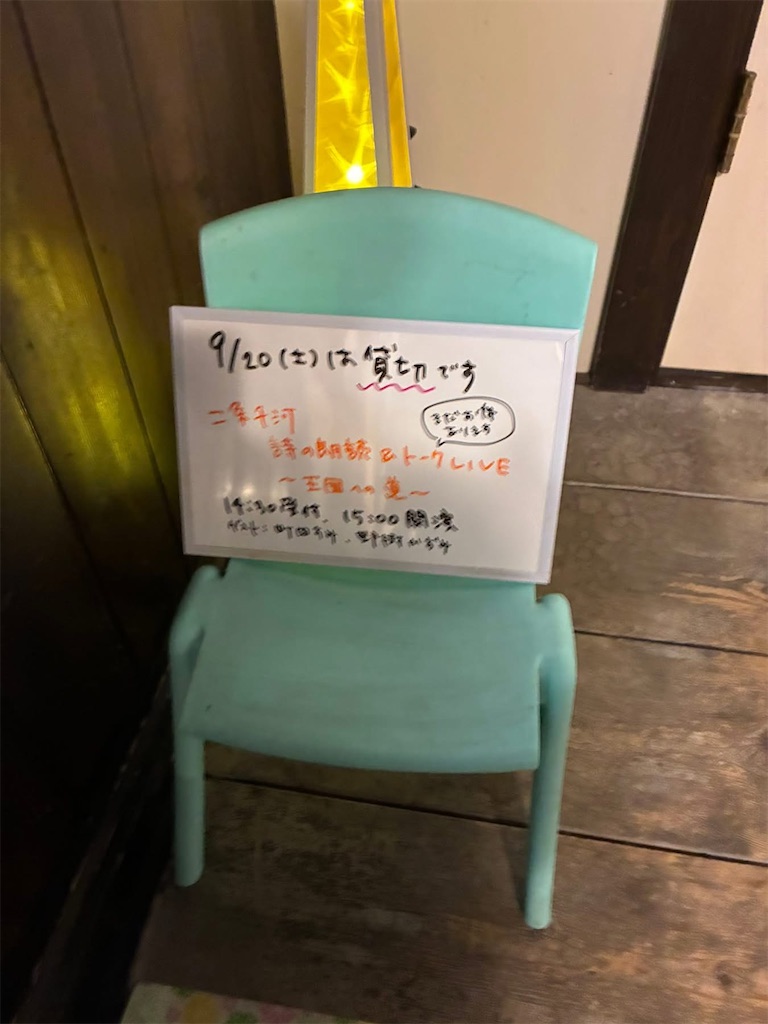 9/20(土)は貸切です
二条千河
まだお席
あります
詩の朗読&トークLIVE
〜王国への道〜
14:30受付、15:00開演
ゲスト: